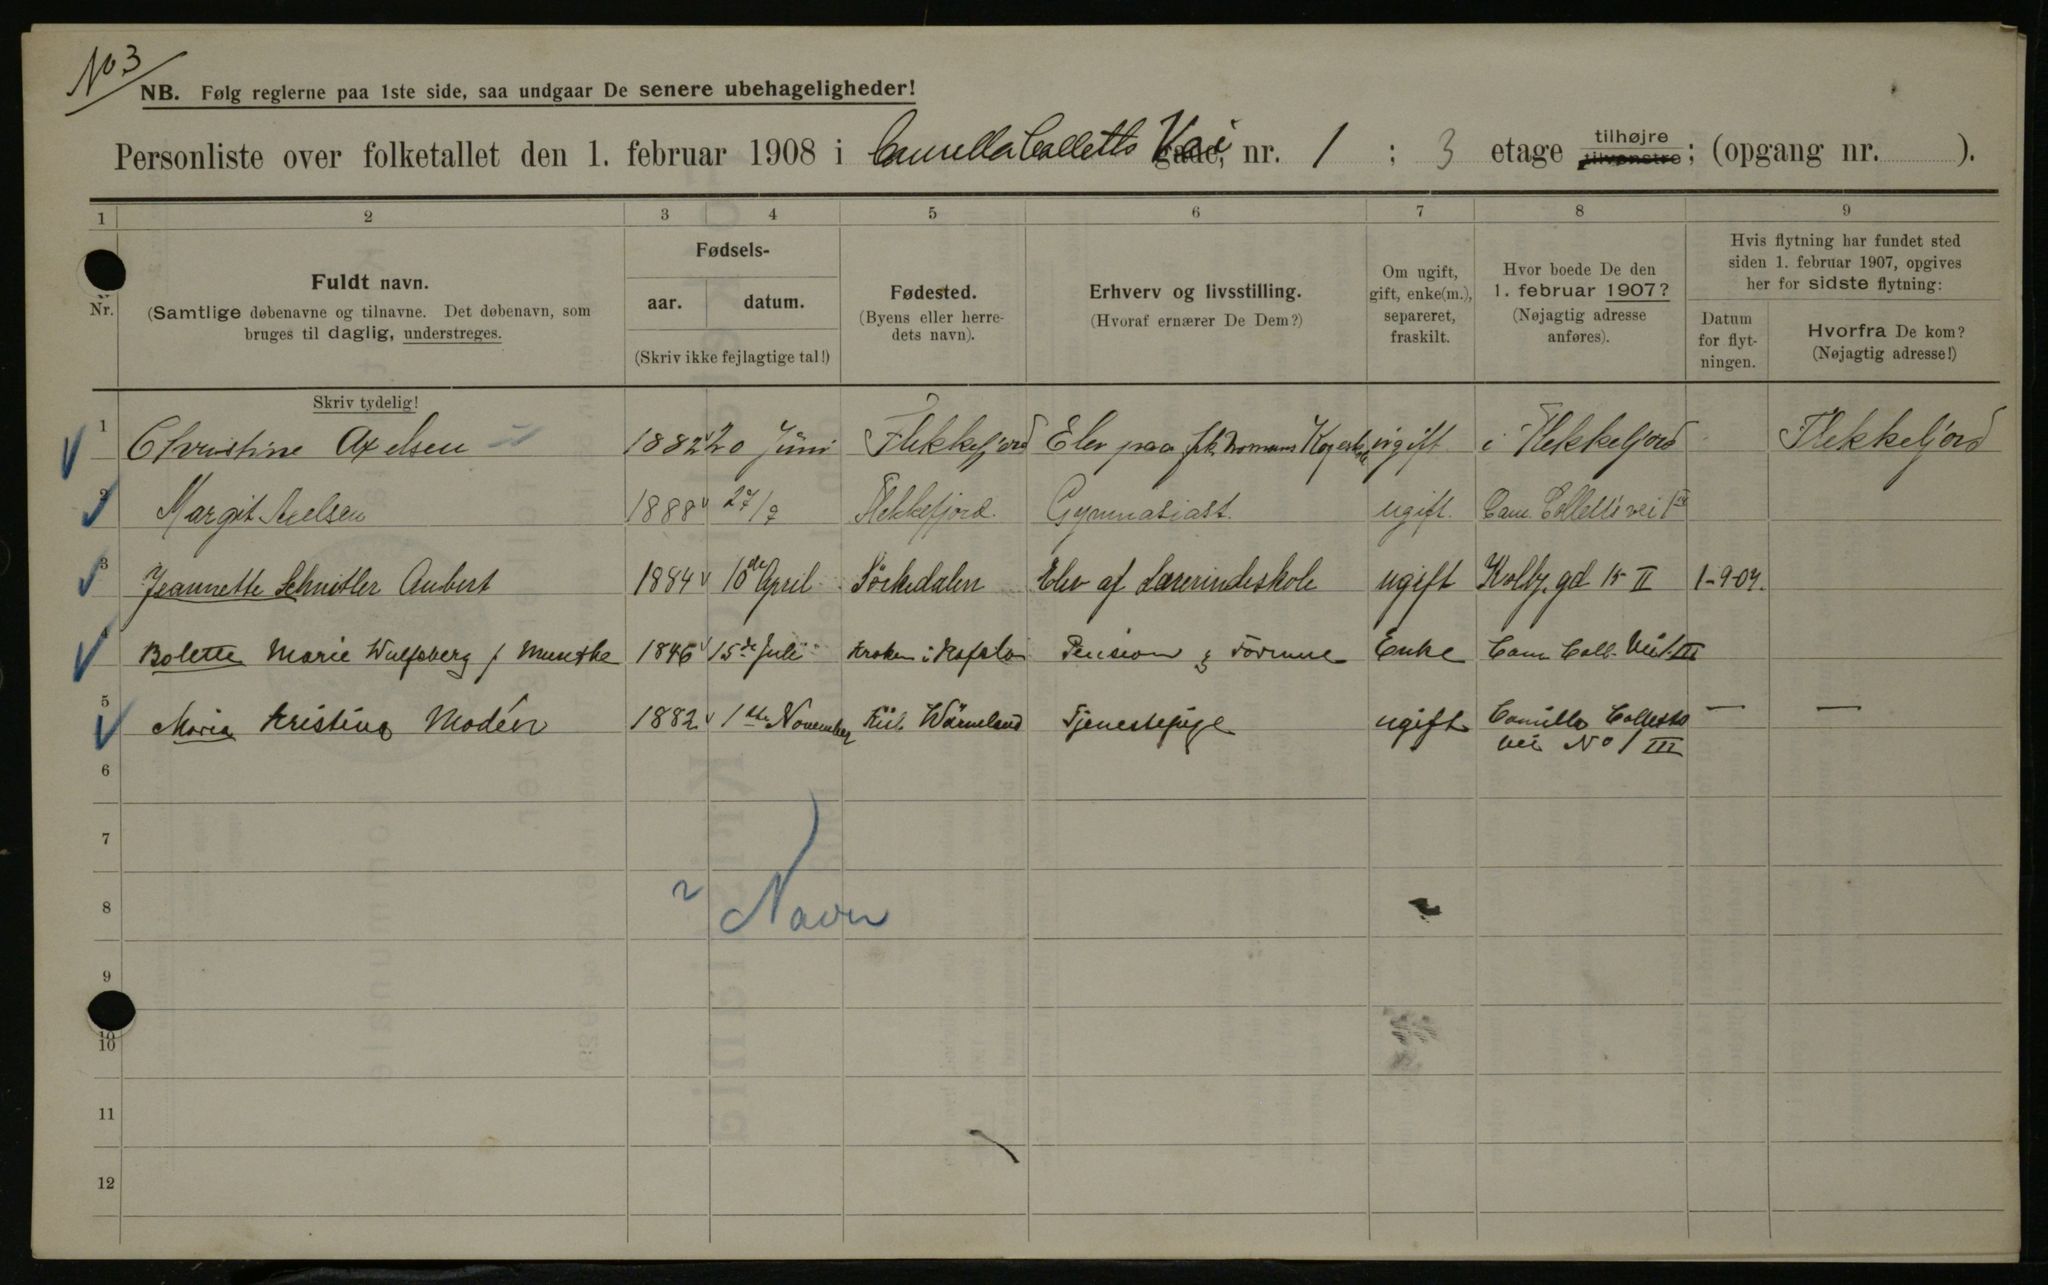 No 3
NB. Følg reglerne paa 1ste side, saa undgaar De senere ubehageligheder!
Personliste over folketallet den 1. februar 1908 i Camilla Colletts Vei gade, nr. 1 ; 3 etage tilhøjre tilvenstre; (opgang nr. ).
1 2 3 4 5 6 7 8 9
Nr.
Fuldt navn.
(Samtlige døbenavne og tilnavne. Det døbenavn, som
bruges til daglig, understreges.
Skriv tydelig!
Fødsels-
aar. datum.
(Skriv ikke fejlagtige tal!)
Fødested.
(Byens eller herre-
dets navn).
Erhverv og livsstilling.
(Hvoraf ernærer De Dem?)
Om ugift,
gift, enke(m.),
separeret,
fraskilt.
Hvor boede De den
1. februar 1907?
(Nøjagtig adresse
anføres).
Hvis flytning har fundet sted
siden 1. februar 1907, opgives
her for sidste flytning:
Datum
for flyt-
ningen.
Hvorfra De kom?
(Nøjagtig adresse!)
1 Christine Axelsen 1882 20 Juni Flekkefjord Elev paa frk. ugift i Flekkefjord Flekkefjord
2 Margit Axelsen 1888 27/9 Flekkefjord. Gymnasiast. ugift. Cam. Colletts vei 1 III
3 Jeannette Schnitler Aubert 1884 10de April Sörkedalen Elev af Lærerindeskole ugift Kolbj. gd 15 II 1-9-07.
Bolette Marie Wulfsberg f Munthe 1846 15de Juli Kroken i Hafslo Pension & Formue Enke Cam Coll. Vei 1. III
5 Maria Kristina Modén 1882 1ste November Wärmeland Tjenestepige ugift Camilla Colletts — —
vei No 1 III
6
7
8
2 Navn
9
10
10
11
12